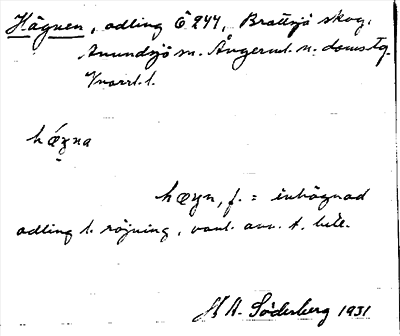 Hägnen, odling Ö 244, Brattsjö skog,
Anundsjö sn. Ångerml. n. doms. tg.
Vnorrl. l.
hǽgna
hægn, f. = inhägnad
odling l. röjning, vanl. avs. t. bete.
H A. Söderberg 1931